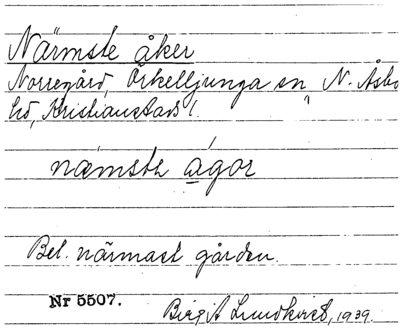 Närmste åker
Norregård, Örkelljunga sn, N. Åsbo
hd, Kristianstads l.
næ̀mste ágor
Bel. närmast gården.
Nr 5507.
Birgit Lundkvist, 1939.